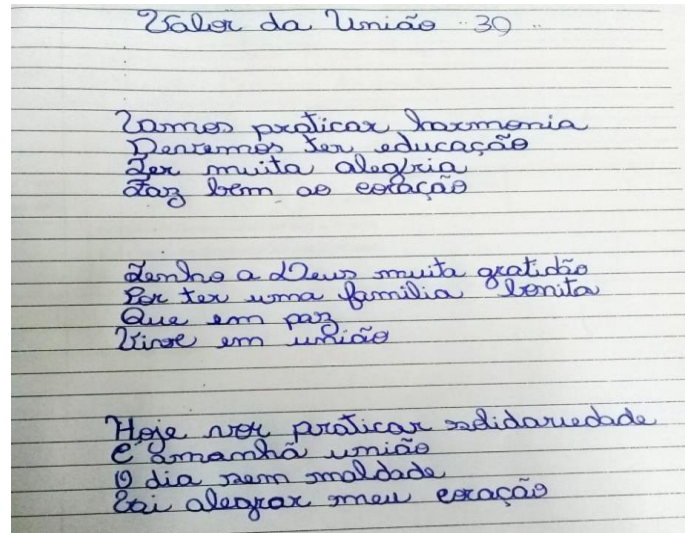 Valor da União 30
Vamos praticar harmonia
Devemos ter educação
Ter muita alegria
Faz bem ao coração
Tenho a Deus muita gratidão
Por ter uma familia bonita
Que em paz
Vive em união
Hoje vou praticar solidariedade
E amanhã união
O dia sem maldade
Vai alegrar meu coração